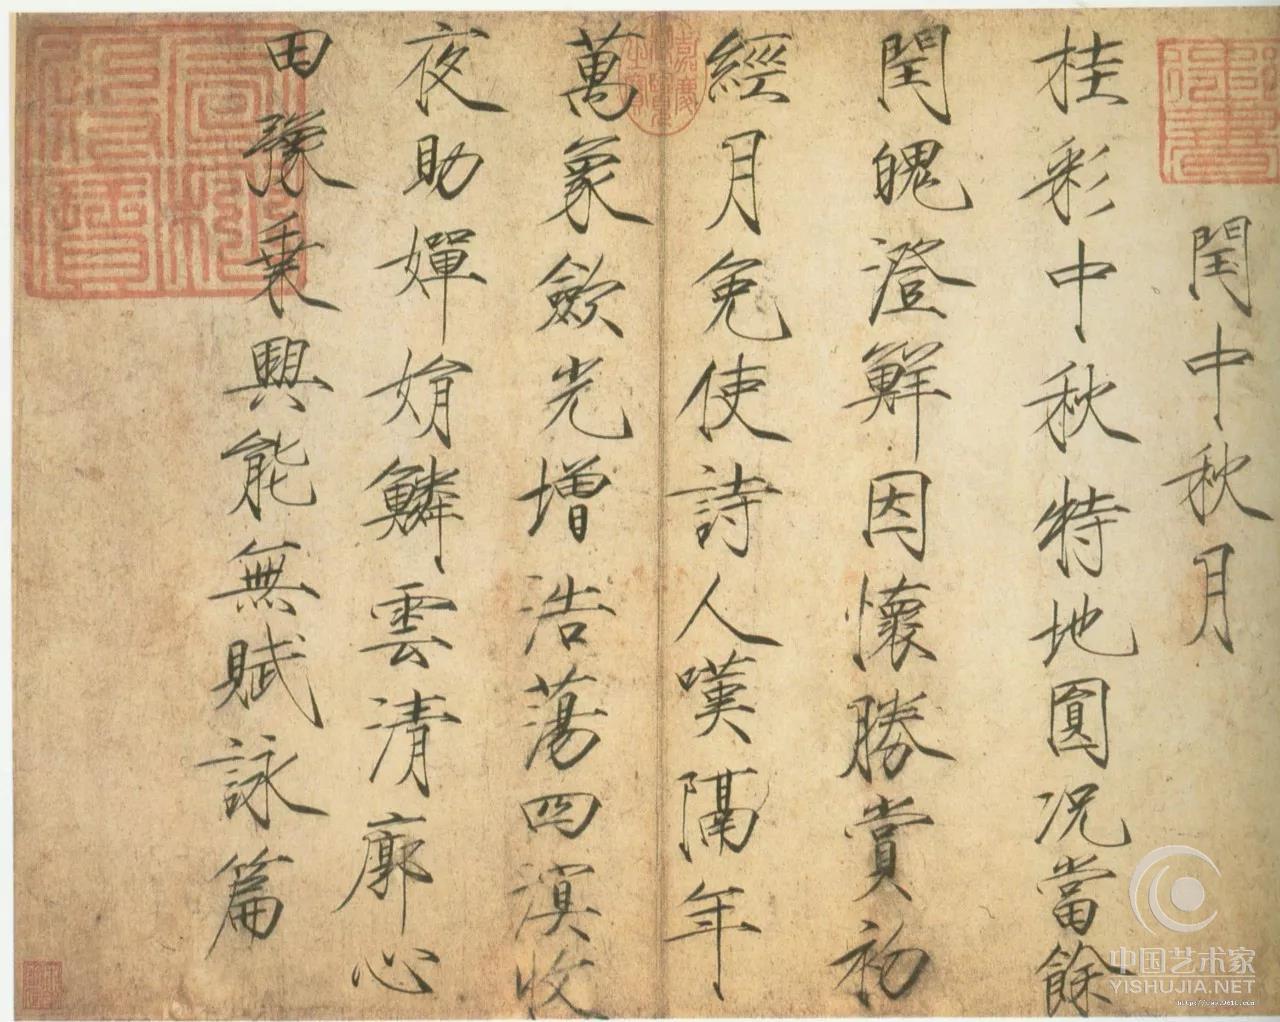 閏中秋月
桂彩中秋特地圓况當餘
閏魄澄鮮因懷勝賞初
經月免使詩人嘆隔年
萬象歛光增浩蕩四溟收
夜助嬋娟鱗雲清廓心
田豫乗興能無賦詠篇
中国艺术家
YISHUJIA.NET